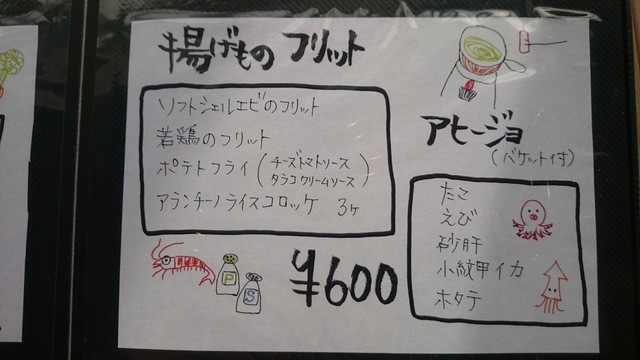 揚げもの フリット
ソフトシェルエビのフリット
若鶏のフリット
ポテトフライ(チーズトマトソース
タラコクリームソース)
アランチーノライスコロッケ 3ヶ
P
S
¥600
アヒージョ
(バケット付)
たこ
えび
砂肝
小紋甲イカ
ホタテ